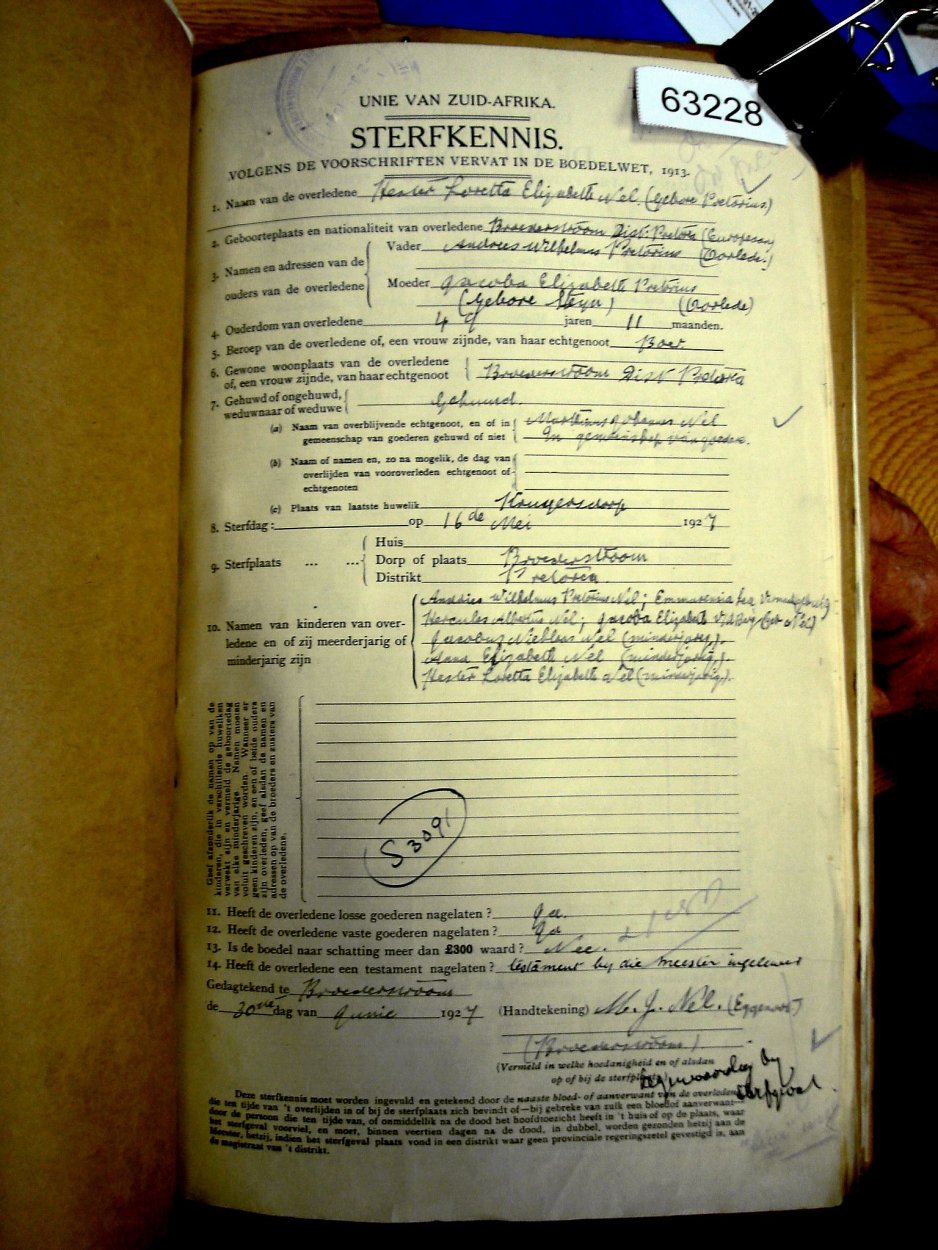 63228
UNIE VAN ZUID-AFRIKA.
STERFKENNIS.
VOLGENS DE VOORSCHRIFTEN VERVAT IN DE BOEDELWET, 1913.
1. Naam van de overledene Hester Loretta Elizabeth Nel. (Gebore Pretorius)
2. Geboorteplaats en nationaliteit van overledene Broederstroom Dist. Pretoria (European
3. Namen en adressen van de ouders van de overledene
Vader Andries Wilhelmus Pretorius (Oorlede.)
Moeder Jacoba Elizabeth Pretorius
(Gebore Steyn) (Oorlede)
4. Ouderdom van overledene 49 jaren 11 maanden.
5. Beroep van de overledene of, een vrouw zijnde, van haar echtgenoot Boer
6. Gewone woonplaats van de overledene
of, een vrouw zijnde, van haar echtgenoot Broederstroom Dist Pretoria
7. Gehuwd of ongehuwd,
weduwnaar of weduwe Gehuurd.
(a) Naam van overblijvende echtgenoot, en of in Marthinus Johannes Nel
gemeenschap van goederen gehuwd of niet In gemeinskap van goedere.
(b) Naam of namen en, zo na mogelik, de dag van
overlijden van vooroverleden echtgenoot of
echtgenoten
(c) Plaats van laatste huwelik Krugersdorp
8. Sterfdag: op 16de Mei 1927
9. Sterfplaats ... ...
Huis
Dorp of plaats Broederstroom
Distrikt Pretoria
10. Namen van kinderen van over-
ledene en of zij meerderjarig of
minderjarig zijn
Andries Wilhelmus Pretorius Nel; Emmarensia
Hercules Albertus Nel; Jacoba Elizabeth v.d. Berg (geb Nel)
Jacobus Nicolaas Nel (minderjarig).
Anna Elizabeth Nel (minderjarig).
Hester Loretta Elizabeth Nel (minderjarig).
Geef afzonderlik de namen op van de
kinderen, die in verschillende huweliken
verwekt zijn en vermeld de geboortedag
van elke minderjarige. Namen moeten
voluit geschreven worden. Wanneer er
geen kinderen zijn, en een of beide ouders
zijn overleden, geef alsdan de namen en
adressen op van de broeders en zusters van
de overledene.
S 3091
11. Heeft de overledene losse goederen nagelaten? Ja.
12. Heeft de overledene vaste goederen nagelaten? Ja
13. Is de boedel naar schatting meer dan £300 waard? Nee.
14. Heeft de overledene een testament nagelaten? testament by die meester ingelewer
Gedagtekend te Broederstroom
de 30ste dag van Junie 1927 (Handtekening) M. J. Nel. (Eggenoot)
(Broederstroom)
(Vermeld in welke hoedanigheid en of alsdan
op of bij de sterfplaats)
by
sterfgeval.
Deze sterfkennis moet worden ingevuld en getekend door de naaste bloed- of aanverwant van de overledene
die ten tijde van 't overlijden in of bij de sterfplaats zich bevindt of—bij gebreke van zulk een bloed of aanverwant—
door de persoon die ten tijde van, of onmiddellik na de dood het hoofdtoezicht heeft in 't huis of op de plaats, waar
het sterfgeval voorviel, en moet, binnen veertien dagen na de dood, in dubbel, worden gezonden hetzij aan de
Meester, hetzij, indien het sterfgeval plaats vond in een distrikt waar geen provinciale regeringszetel gevestigd is, aan
de magistraat van 't distrikt.